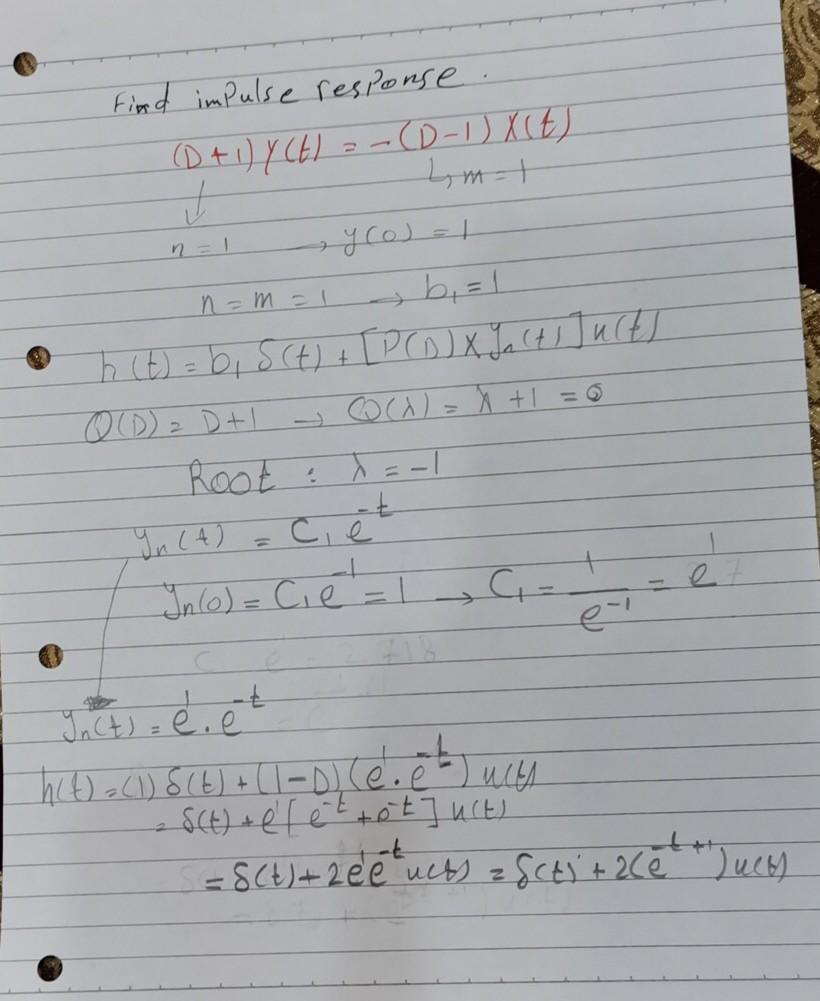 Find impulse response.
(D+1)y(t) = -(D-1)X(t)
↳ m=1
n=1 → y(0) = 1
n = m = 1 → b₁ = 1
h(t) = b₁ δ(t) + [P(D) × yₙ(t)]u(t)
Q(D) = D+1 → Q(λ) = λ + 1 = 0
Root : λ = -1
yₙ(t) = C₁ e^-t
yₙ(0) = C₁e^-1 = 1 → C₁ = 1/e^-1 = e^1
yₙ(t) = e^1 . e^-t
h(t) = (1) δ(t) + (1-D)(e^1 . e^-t) u(t)
= δ(t) + e^1[e^-t + e^-t] u(t)
= δ(t) + 2e^1e^-t u(t) = δ(t) + 2(e^-t+1)u(t)